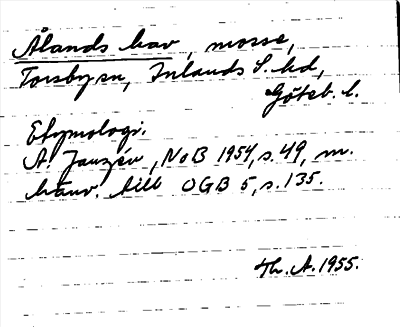 Ålands hav, mosse,
Torsby sn, Inlands S. hd,
Göteb. l.
Etymologi.
A. Janzén, NoB 1954, s. 49, m.
hänv. till OGB 5, s. 135.
Th. A. 1955.